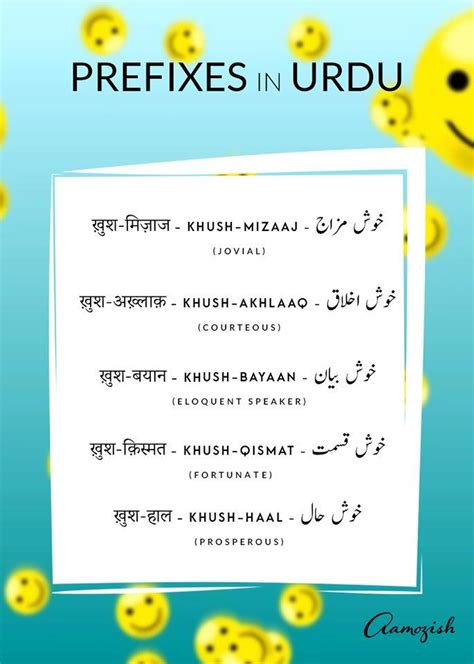 PREFIXES IN URDU
ख़ुश-मिज़ाज - KHUSH-MIZAAJ - خوش مزاج
(JOVIAL)
ख़ुश-अख़्लाक़ - KHUSH-AKHLAAQ - خوش اخلاق
(COURTEOUS)
ख़ुश-बयान - KHUSH-BAYAAN - خوش بیان
(ELOQUENT SPEAKER)
ख़ुश-क़िस्मत - KHUSH-QISMAT - خوش قسمت
(FORTUNATE)
ख़ुश-हाल - KHUSH-HAAL - خوش حال
(PROSPEROUS)
Aamozish